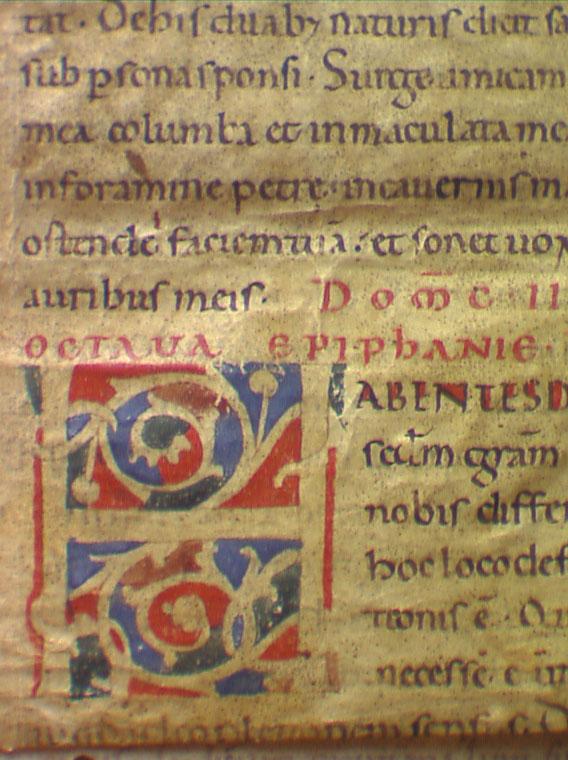 tat. De his duabꝫ naturis dicit sa
sub ꝑsona sponsi. Surge amica m
mea columba et inmaculata me
in foramine petre. in cauernis m
ostende faciem tuā. et sonet uox
auribus meis. DOM̄C II
OCTAVA EPIPHANIE.
HABENTES D
scd̄m grām
nobis differ
hoc loco def
tionis ē.
necesse. ē